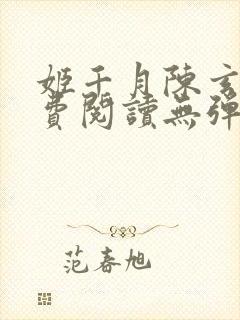 姬千月陳玄
費閱讀無彈
范春旭